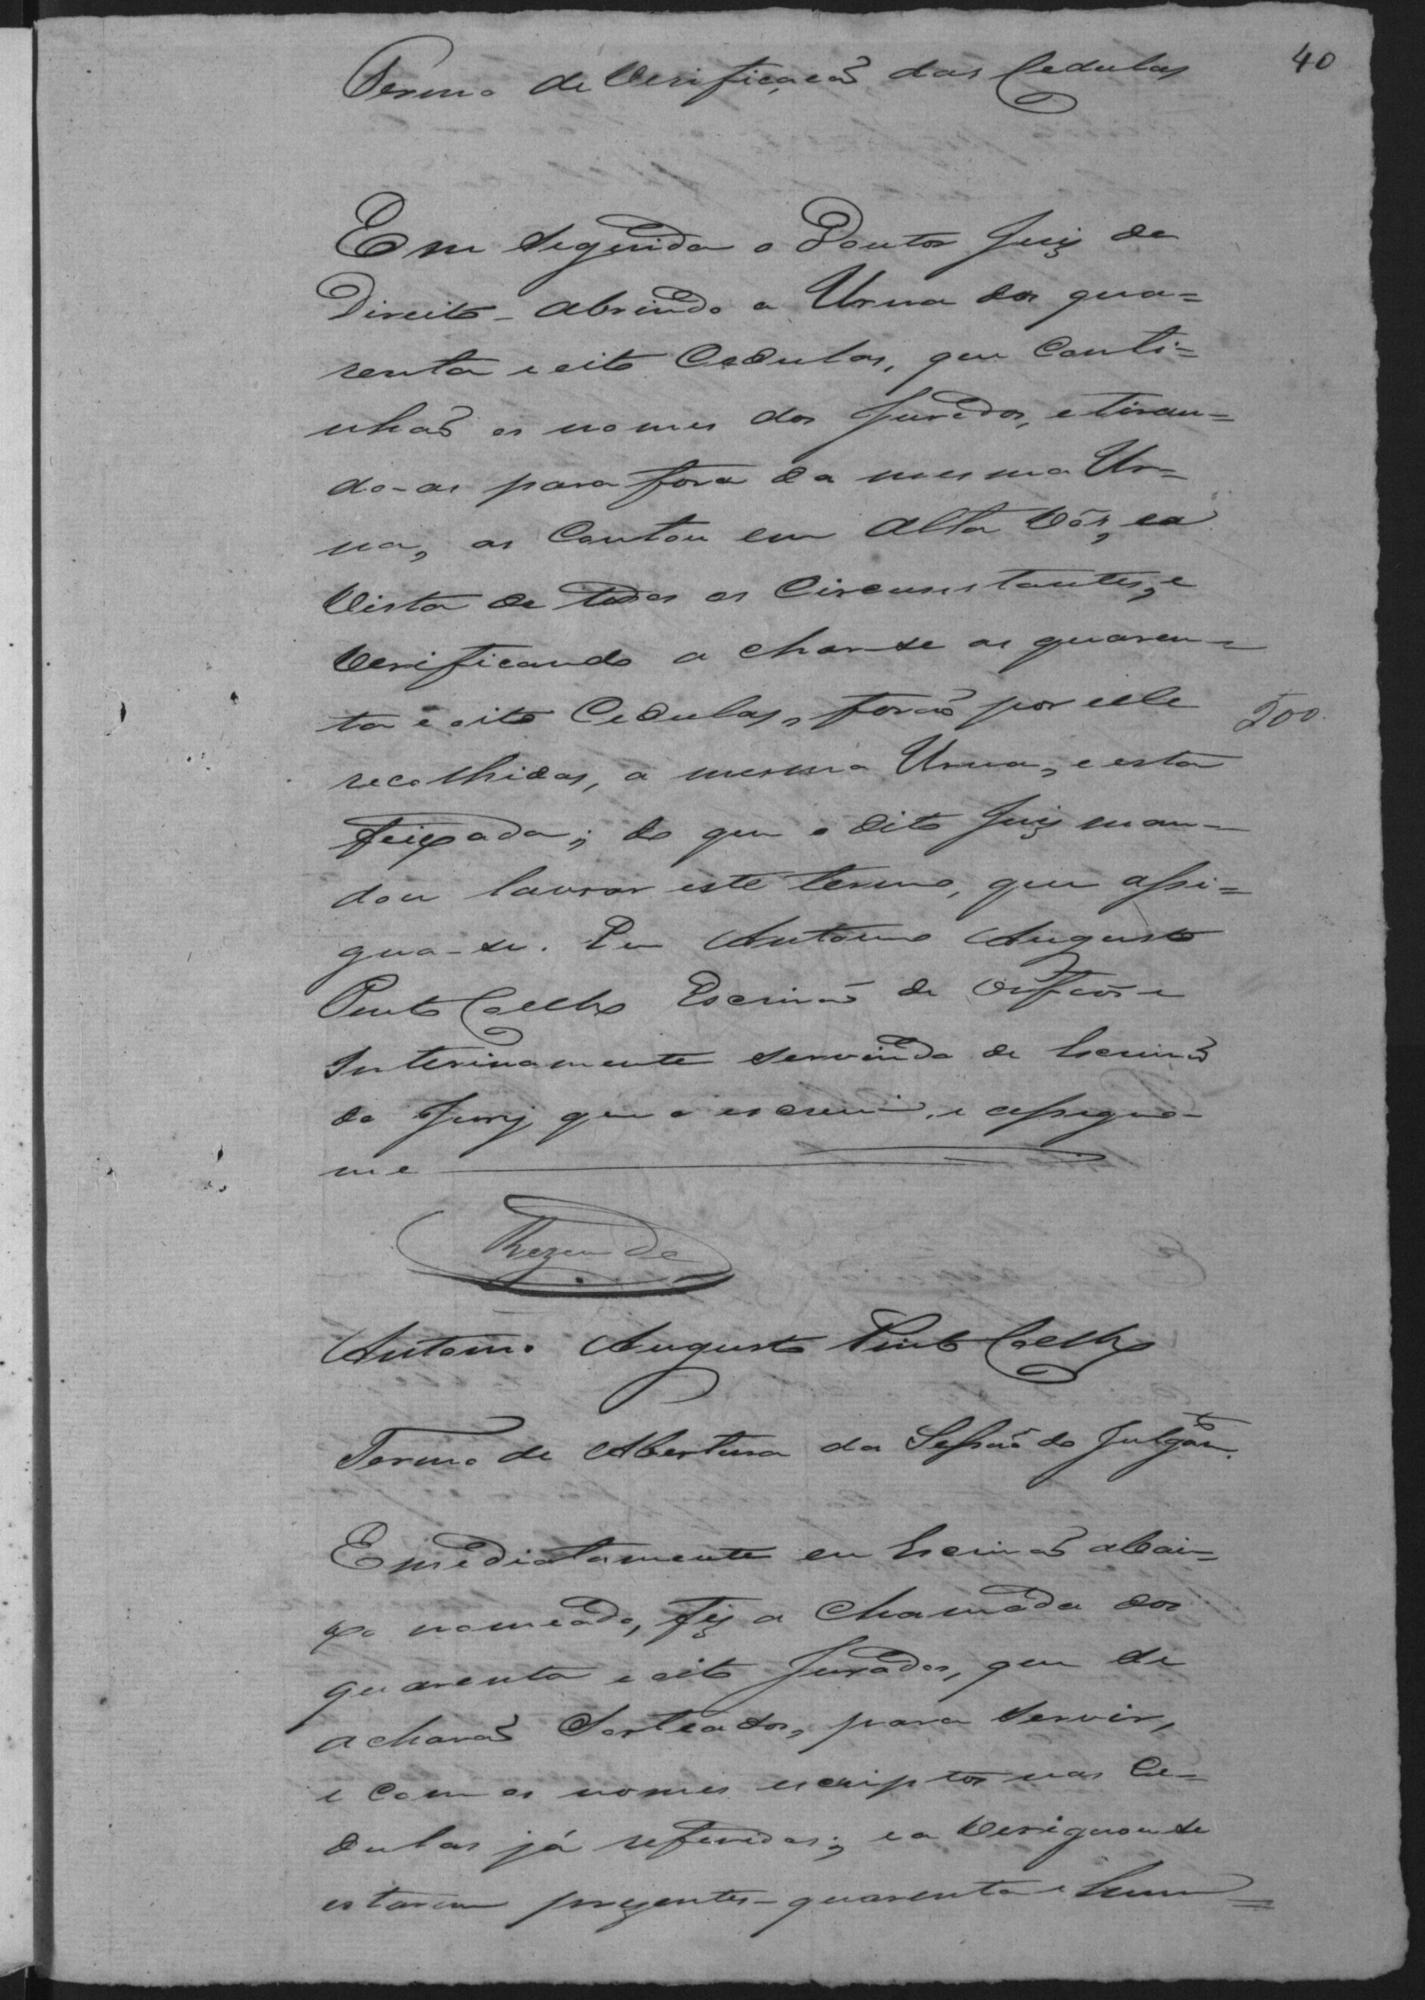 40
Termo de Verificação das Cedulas
Em seguida o Doutor Juiz de
Direito - abrindo a Urna das qua=
renta e oito Cedulas, que Conti=
nhaõ os nomes dos Jurados, e tiran=
do-as para fora da mesma Ur=
na, as Contou em Alta Vós, e a
Vista de todos os Circunstantes, e
Verificando acharse as quaren=
ta e oito Cedulas, foraõ por elle
500
recolhidas, a mesma Urna, e esta
feixada; do que o dito Juiz man=
dou lavrar este termo, que assi=
gna-se. Eu Antonio Augusto
Pinto Coelho Escrivaõ de Orfaõs e
Interinamente servindo de Escrivaõ
do Jury que o escrevi, e assigno-
me
Rezende
Antonio Augusto Pinto Coelho
Termo de Abertura da Sessaõ do Julgam.to
E mediatamente eu Escrivaõ abai=
xo nomeado, fiz a Chamada dos
quarenta e oito Jurados, que se
acharaõ Sorteados, para servir,
e com os nomes escriptos nas Ce=
dulas já referidas; e a Verigouse
estarem prezentes - quarenta e hum=